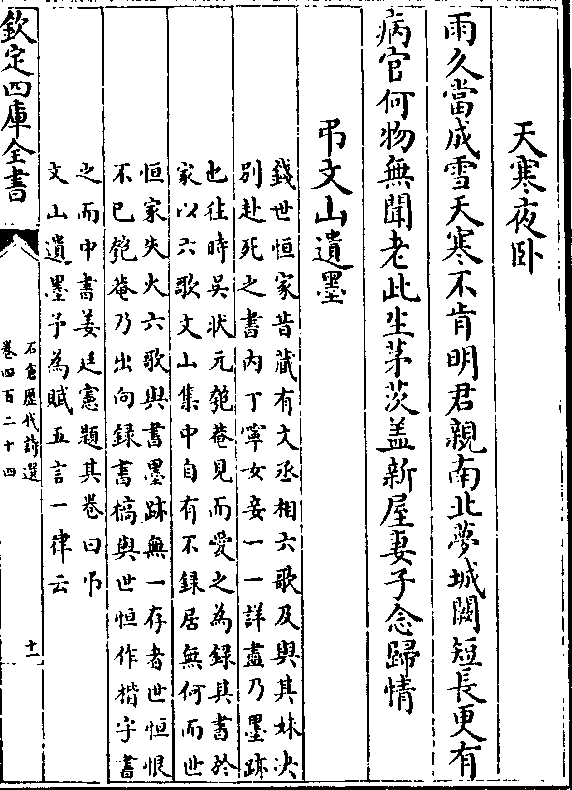 天寒夜卧
雨久當成雪天寒不肯明君親南北夢城闕短長更有
病官何物無聞老此生茅茨盖新屋妻子念歸情
弔文山遺墨
錢世恒家昔藏有文丞相六歌及與其妹决
别赴死之書内丁寧女妾一一詳盡乃墨跡
也往時吴狀元匏菴見而愛之為録其書於
家以六歌文山集中自有不録居無何而世
恒家失火六歌與書墨跡無一存者世恒恨
不已匏菴乃出向録書槁與世恒作楷字書
之而中書姜廷憲題其卷曰弔
文山遺墨予為賦五言一律云
欽定四庫全書
石倉歷代詩選
卷四百二十四
十一